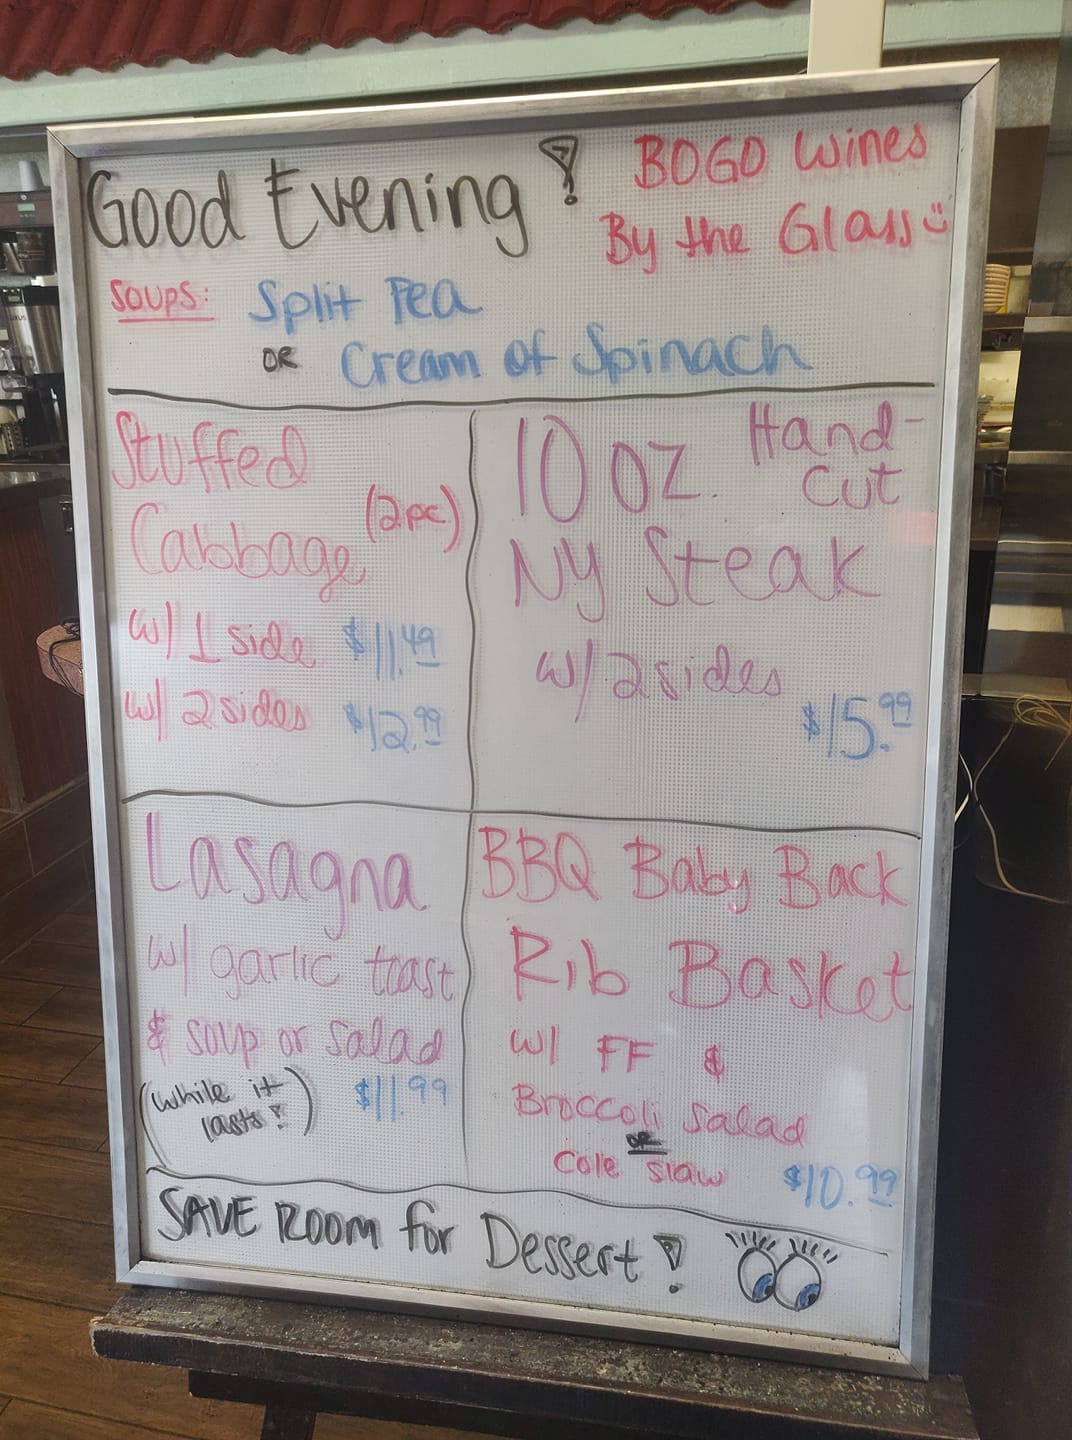 Good Evening!
BOGO Wines
By the Glass
SOUPS: Split Pea
OR Cream of Spinach
Stuffed
Cabbage (2pc)
w/ 1 side $11.49
w/ 2 sides $12.99
10 oz. Hand-
Cut
NY Steak
w/ 2 sides
$15.99
Lasagna
w/ garlic toast
& soup or salad
(while it
lasts!) $11.99
BBQ Baby Back
Rib Basket
w/ FF &
Broccoli Salad
OR
Cole Slaw $10.99
SAVE ROOM for Dessert!